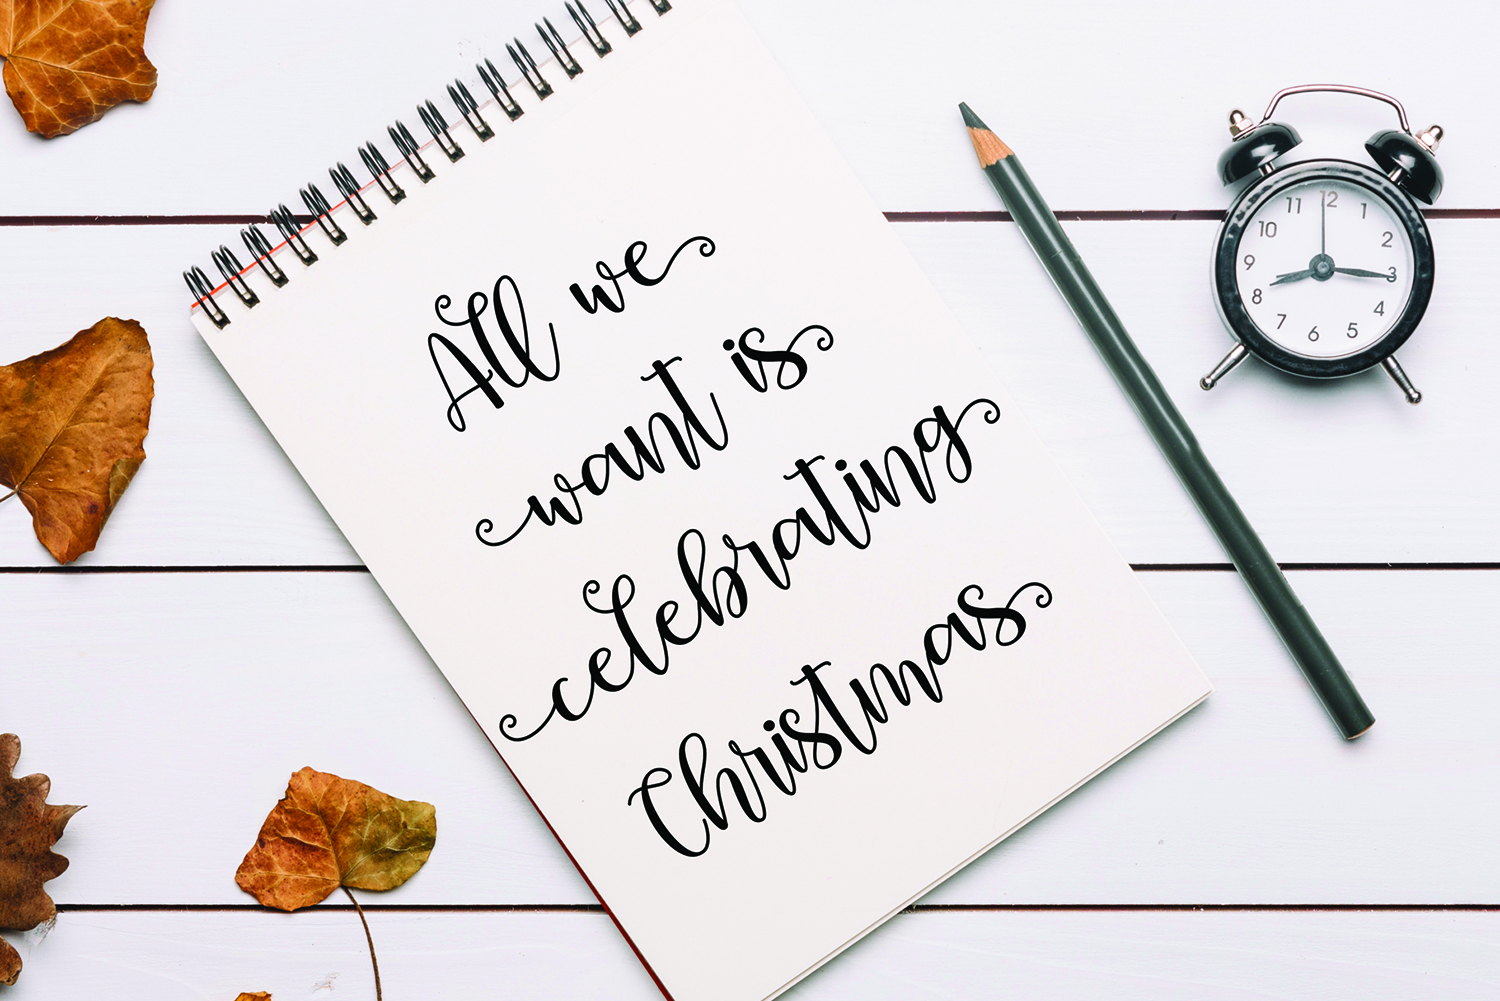 All we
want is
celebrating
Christmas
12
1
2
3
4
5
6
7
8
9
10
11